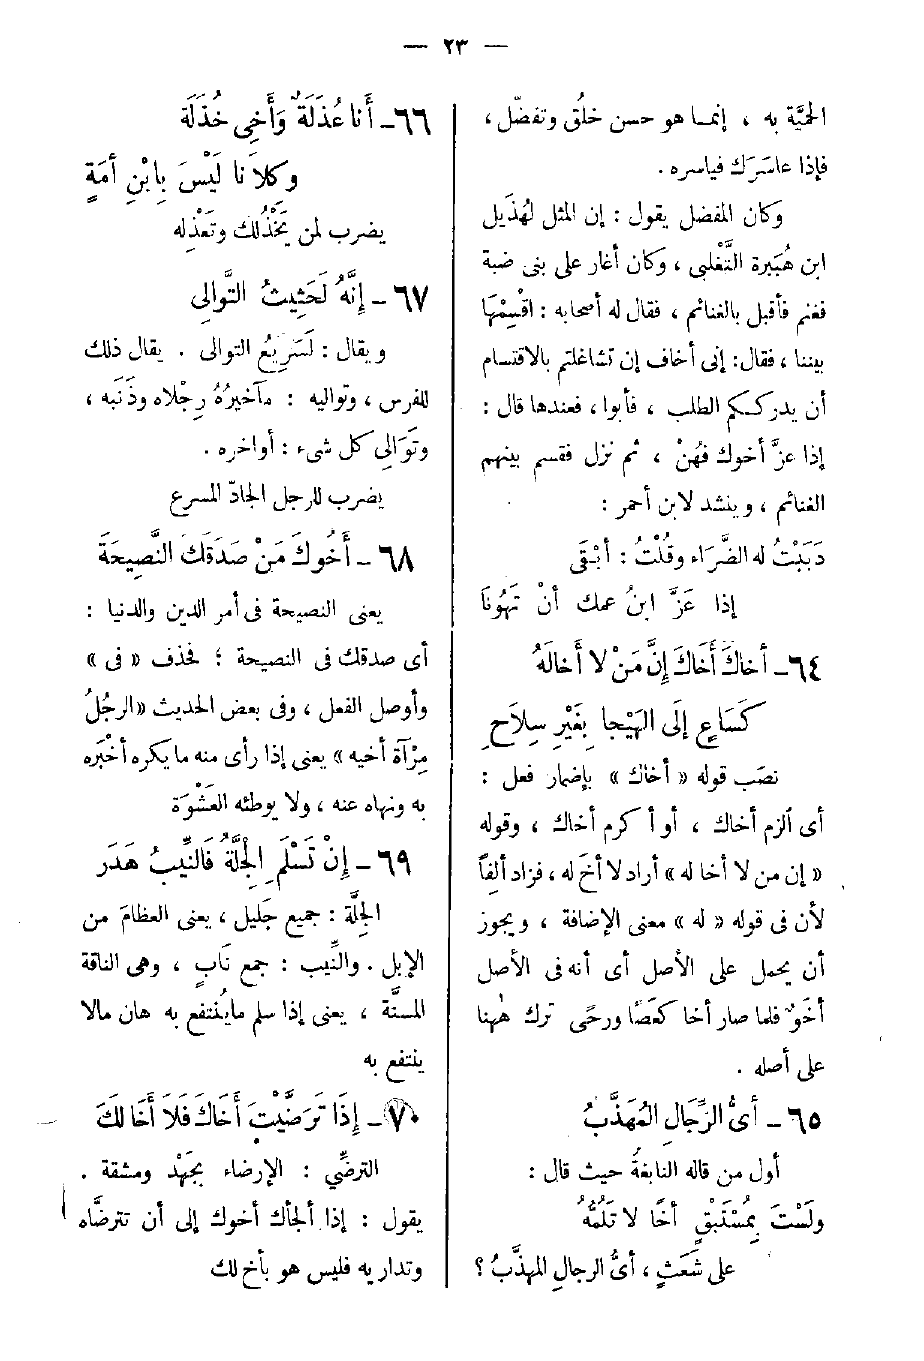 — ٢٣ —
الحميَّة به ، إنما هو حسن خلُق وتفضّل ،
فإذا عاسَرَك فياسره .
وكان المفضل يقول : إن المثل لهُذَيل
ابن هُبَيرة التَّغلبى ، وكان أغار على بنى ضبة
فغنم فأقبل بالغنائم ، فقال له أصحابه : اقْسِمْهَا
بيننا ، فقال : إنى أخاف إن تشاغلتم بالاقتسام
أن يدرككم الطلب ، فأبوا ، فعندها قال :
إذا عزَّ أخوك فهُنْ ، ثم نزل فقسم بينهم
الغنائم ، وينشد لابن أحمر :
دَبَبْتُ له الضَّرَاء وقُلْتُ : أبْقَى
إذا عَزَّ ابنُ عمك أنْ تَهُونَا
٦٤ـ أخاكَ أَخَاكَ إنَّ مَنْ لا أَخَالَهُ
كَسَاعٍ إلَى الهَيْجا بِغَيْرِ سِلاَحِ
نصَب قوله « أخاك » بإضمار فعل :
أى الزم أخاك ، أو أكرم أخاك ، وقوله
« إن من لا أخا له » أراد لا أخَ له ، فزاد ألِفاً
لأن فى قوله « له » معنى الإضافة ، ويجوز
أن يحمل على الأصل أى أنه فى الأصل
أخَوٌ فلما صار أخا كعَصًا ورحًى ترك ههنا
على أصله .
٦٥ ـ أىُّ الرِّجَالِ المُهَذَّبُ
أول من قاله النابغةُ حيث قال :
ولَسْتَ بِمُسْتَبْقٍ أخًا لا تَلُمُّهُ
على شَعَثٍ ، أىُّ الرجالِ المهذَّبُ ؟
٦٦ـ أَنا عُذَلَةٌ وَأَخِى خُذَلَة
وكلاَنا لَيْسَ بِابْنِ أمَةٍ
يضرب لمن يَخْذُلك وتَعْذِله
٦٧ ـ إِنَّهُ لَحَثِيثُ التَّوالِى
ويقال : لَسَرِيعُ التوالى . يقال ذلك
للفرس ، وتواليه : مآخيرُهُ رِجْلاه وذَنَبه ،
وتَوَالِى كل شىء : أواخره .
يضرب للرجل الجادّ المسرع
٦٨ ـ أَخُوكَ مَنْ صَدَقَكَ النَّصِيحَةَ
يعنى النصيحة فى أمر الدين والدنيا :
أى صدقك فى النصيحة ؛ فحذف « فى »
وأوصل الفعل ، وفى بعض الحديث «الرجُلُ
مِرْآة أخيه » يعنى إذا رأى منه ما يكره أخْبَره
به ونهاه عنه ، ولا يوطئه العَشْوَة
٦٩ ـ إنْ تَسْلَمِ الجِلَّةُ فَالنِّيبُ هَدَر
الجلَّة : جميع جَليل ، يعنى العظامَ من
الإبل . والنِّيب : جمع نَابٍ ، وهى الناقة
المسنَّة ، يعنى إذا سلم ما يُنتفع به هان مالا
ينتفع به
٧٠ـ إِذَا تَرَضَّيْتَ أَخَاكَ فَلاَ أَخَا لَكَ
الترضِّي : الإرضاء بجَهْد ومشقة .
يقول : إذا ألجأك أخوك إلى أن تترضَّاه
وتداريه فليس هو بأخ لك